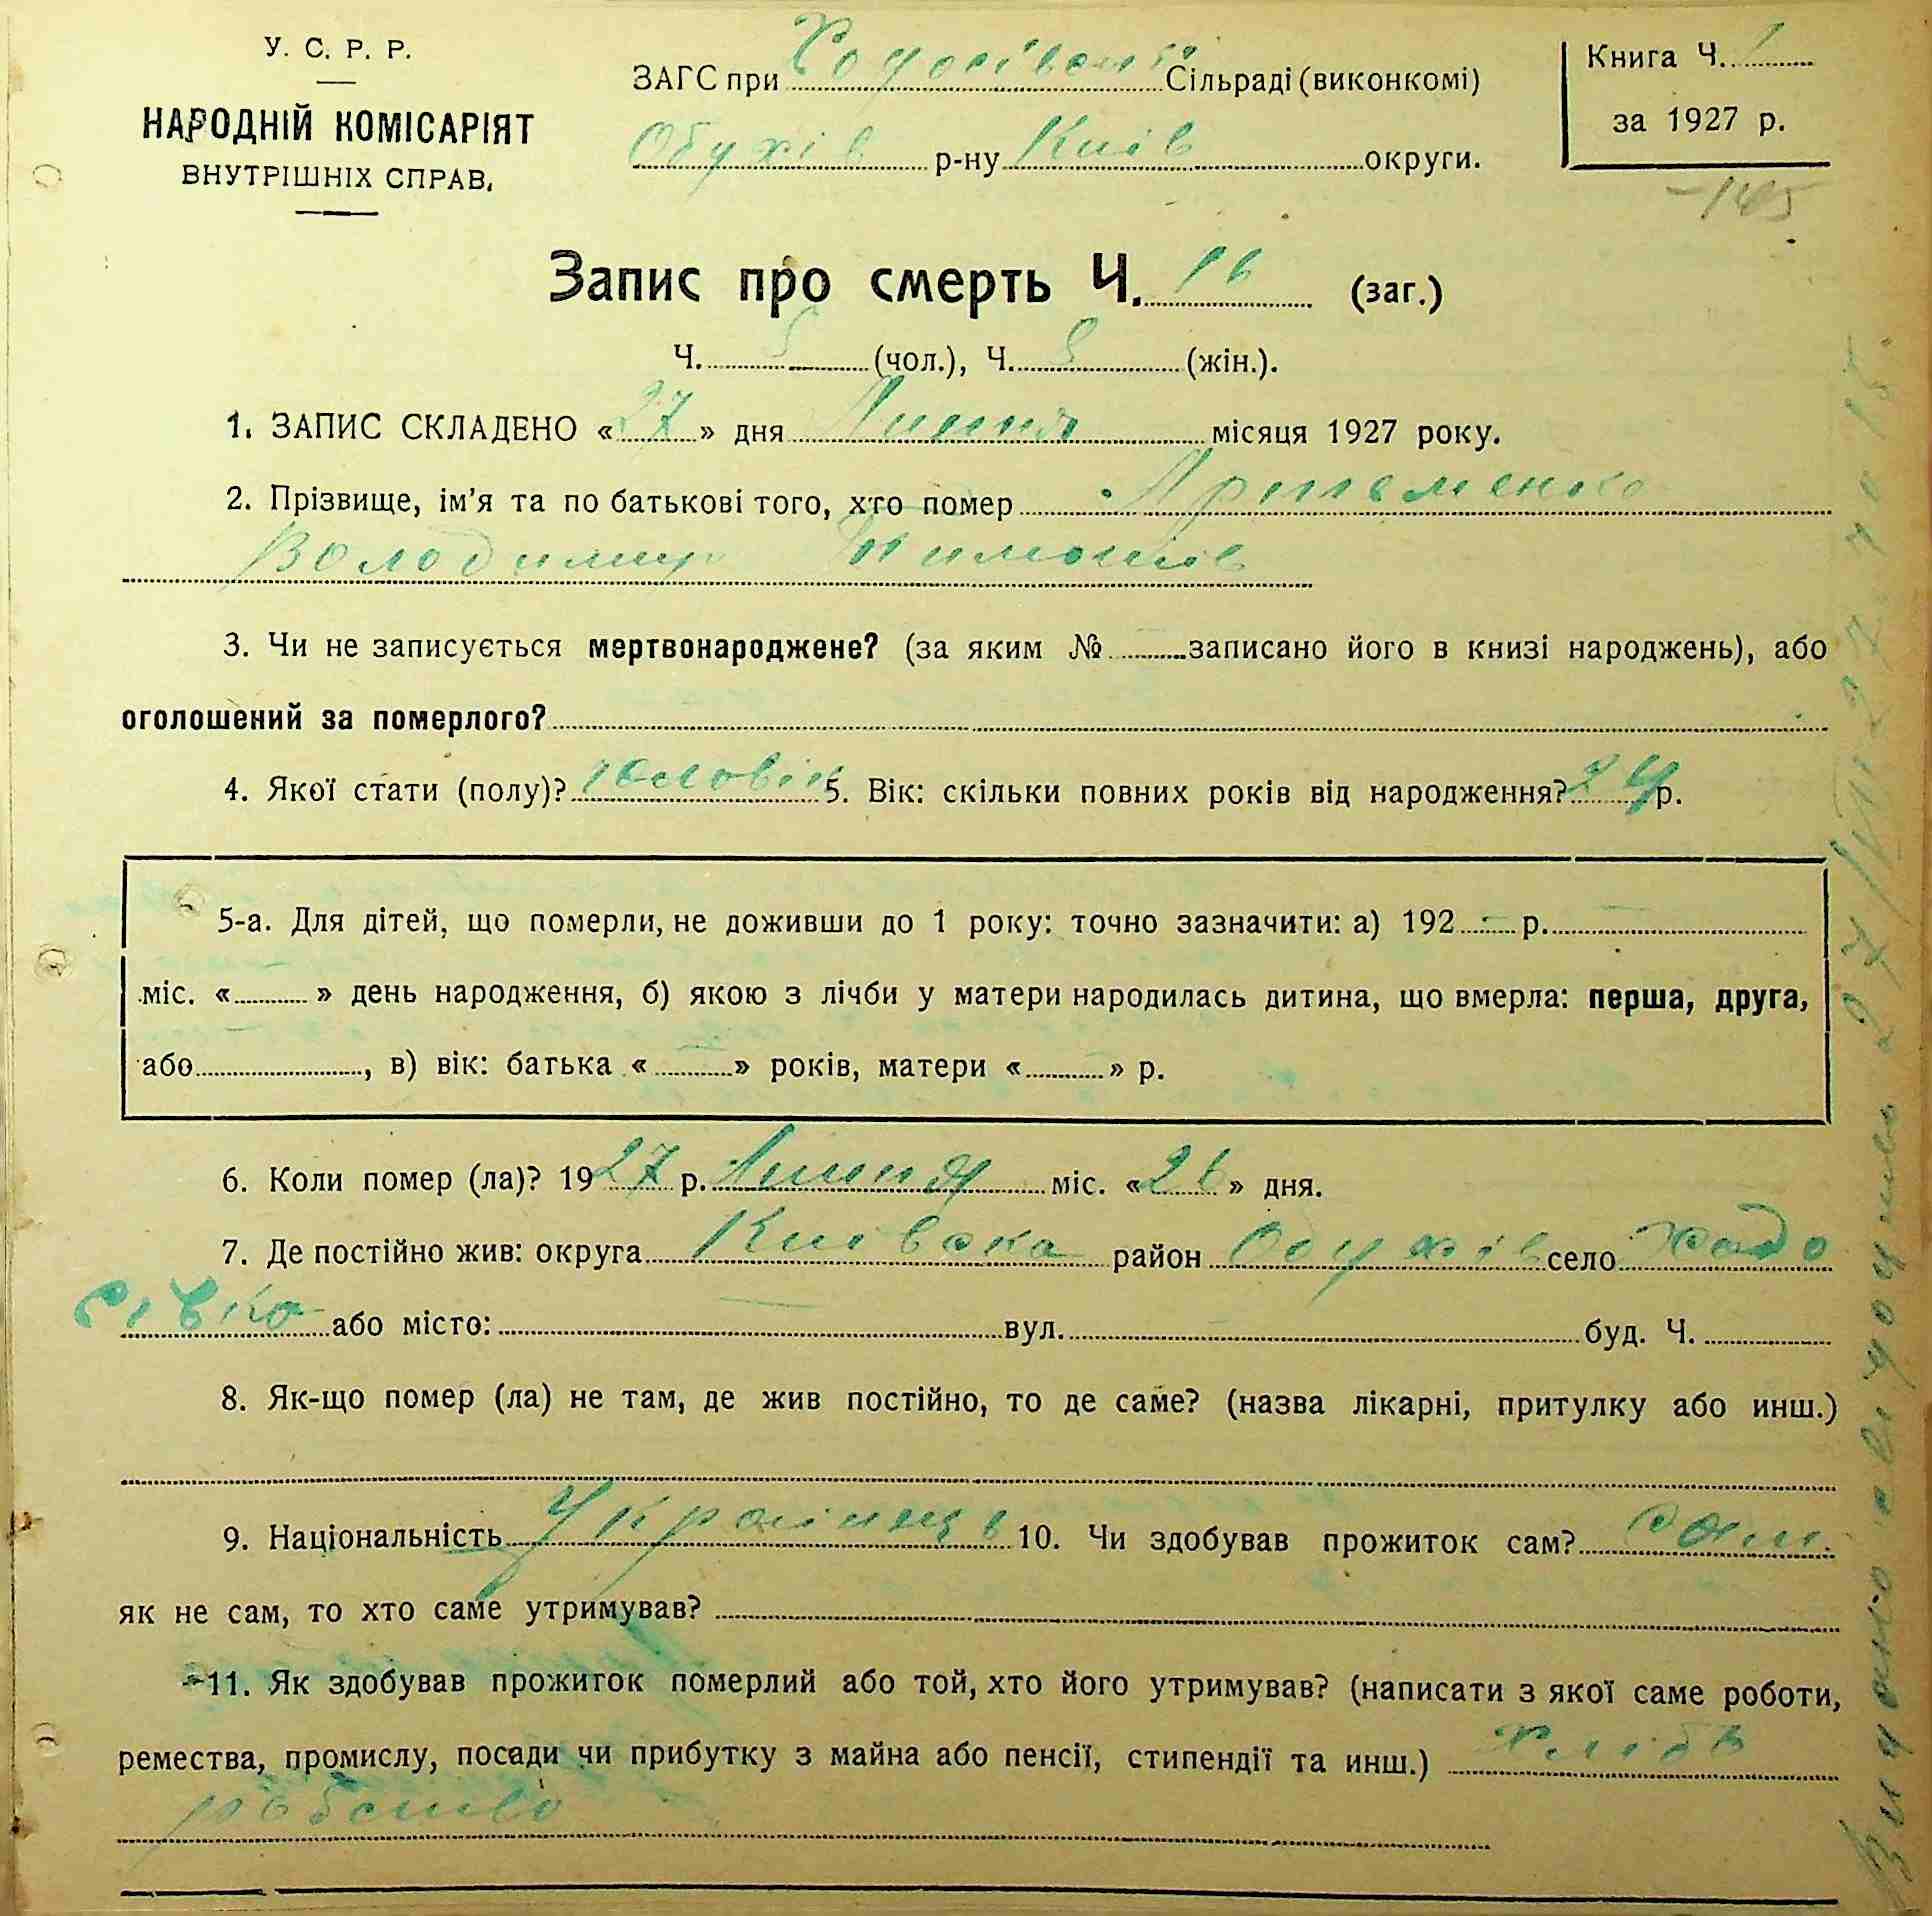 У. С. Р. Р.
НАРОДНІЙ КОМІСАРІЯТ
ВНУТРІШНІХ СПРАВ.
ЗАГС при Ходосівській Сільраді (виконкомі)
Обухів р-ну Київ округи.
Книга Ч. 1
за 1927 р.
Запис про смерть Ч. 16 (заг.)
Ч. (чол.), Ч. 8 (жін.).
1. ЗАПИС СКЛАДЕНО « 27 » дня Липня місяця 1927 року.
2. Прізвище, ім'я та по батькові того, хто помер
Володимир Тимошів
3. Чи не записується мертвонароджене? (за яким № записано його в книзі народжень), або
оголошений за померлого?
4. Якої стати (полу)? чоловік 5. Вік: скільки повних років від народження? 24 р.
5-а. Для дітей, що померли, не доживши до 1 року: точно зазначити: а) 192 - р.
міс. « » день народження, б) якою з лічби у матери народилась дитина, що вмерла: перша, друга,
або , в) вік: батька « » років, матери « » р.
6. Коли помер (ла)? 1927 р. Липня міс. « 26 » дня.
7. Де постійно жив: округа Київска район Обухів село Ходо
сівка або місто: вул. буд. Ч.
8. Як-що помер (ла) не там, де жив постійно, то де саме? (назва лікарні, притулку або инш.)
9. Національність Українець 10. Чи здобував прожиток сам? Сам.
як не сам, то хто саме утримував?
11. Як здобував прожиток померлий або той, хто його утримував? (написати з якої саме роботи,
ремества, промислу, посади чи прибутку з майна або пенсії, стипендії та инш.) Хлібо
робство